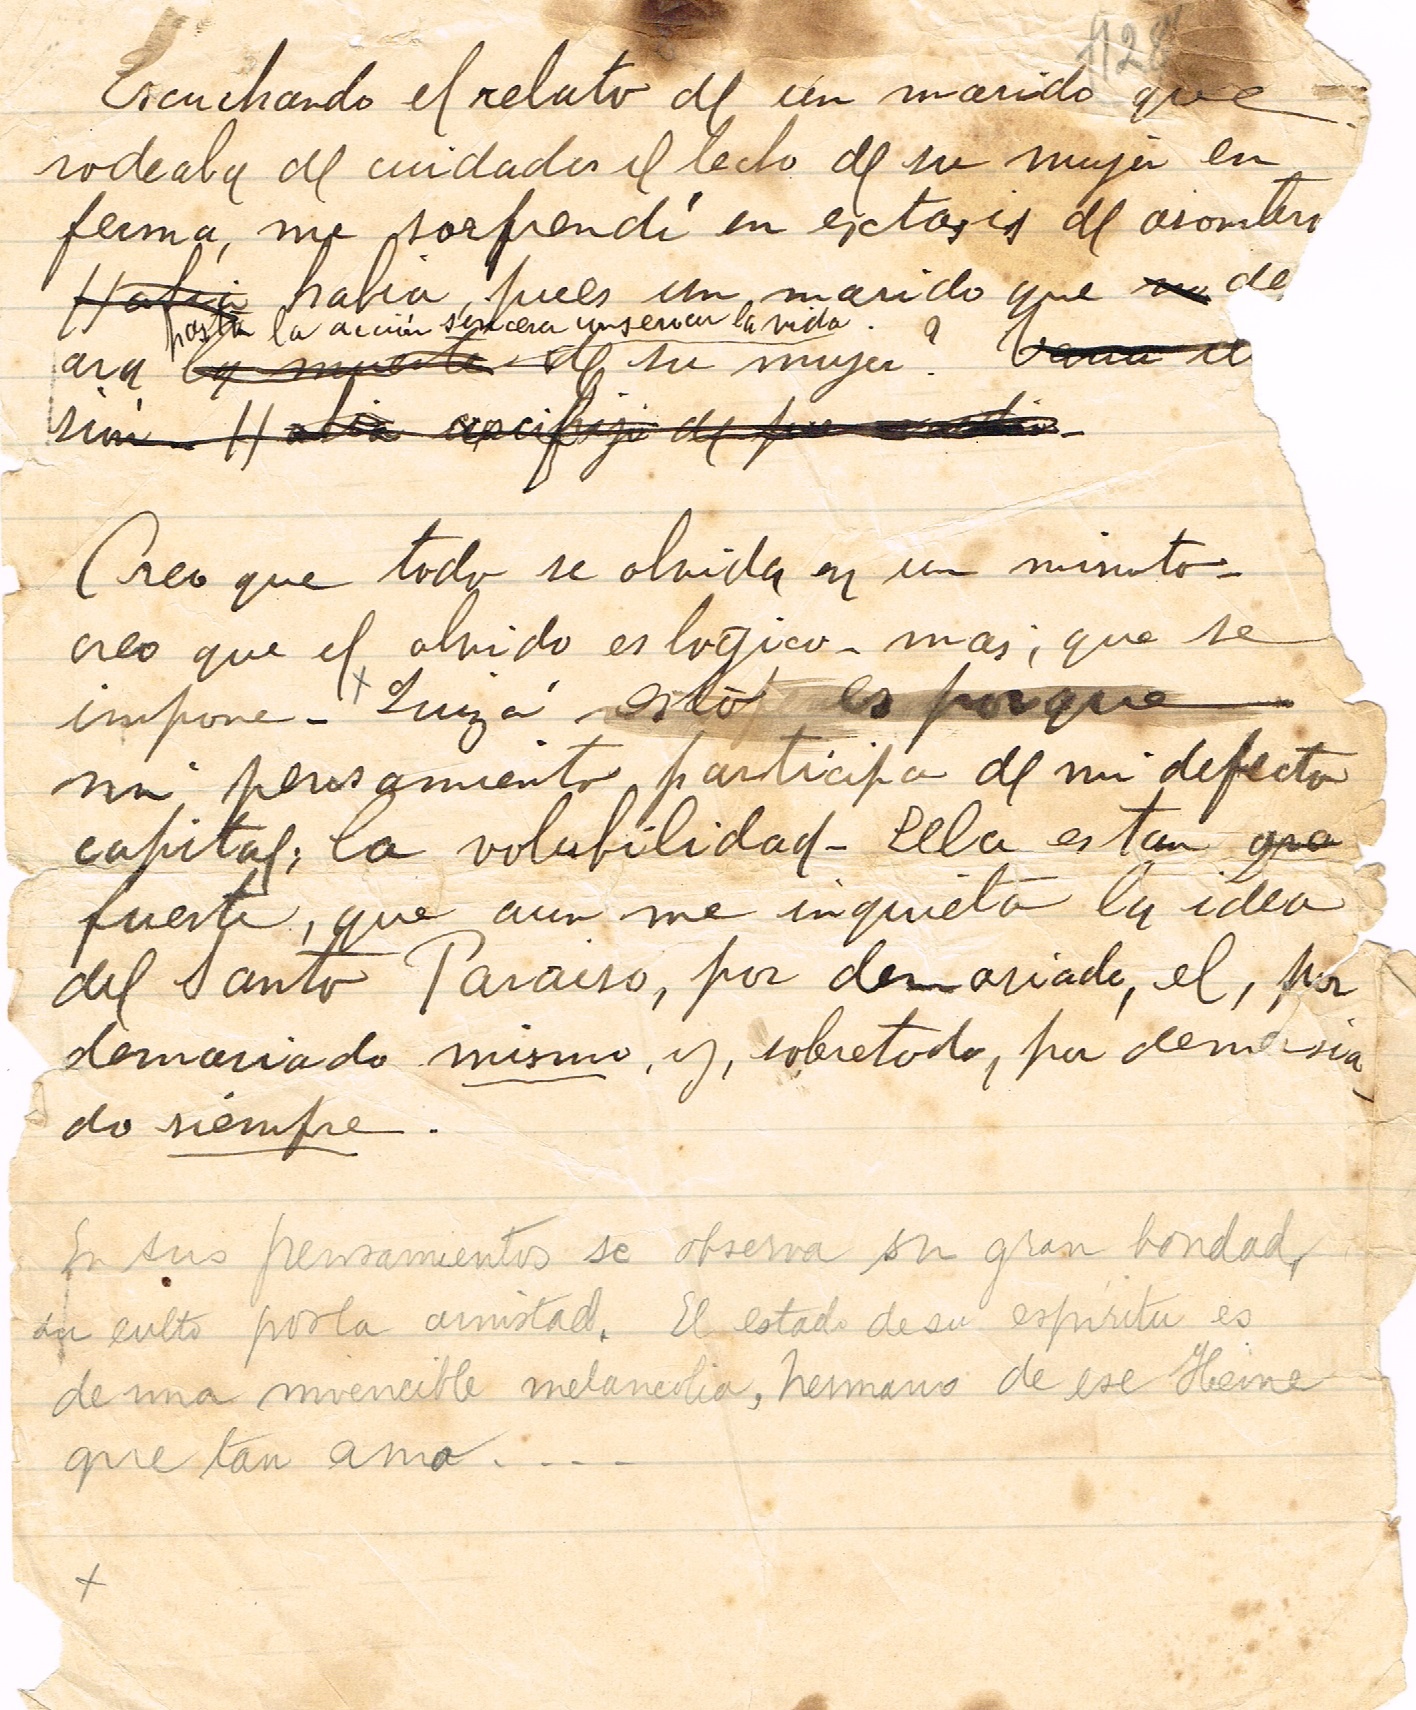 1128
Escuchando el relato de un marido que
rodeaba de cuidados el lecho de su mujer en
ferma, me sorprendí en extasis de asombro
Habia habia, pues un marido que no de
hasta la acción sincera conservar la vida.
ara la muerte de su mujer? Vana il
sión. Habia de por
Creo que todo se olvida en un minuto-
creo que el olvido es logico- mas, que se
impone- + Quizá esto es porque
mi pensamiento participa de mi defecto
capital; la volubilidad- Ella es tan gra
fuerte, que aun me inquieta la idea
del Santo Paraiso, por demasiado, el, por
demasiado mismo, y, sobretodo, por demasia
do siempre.
En sus pensamientos se observa su gran bondad,
su culto por la amistad. El estado de su espíritu es
de una invencible melancolia, hermano de ese Heine
que tan ama. - - -
+